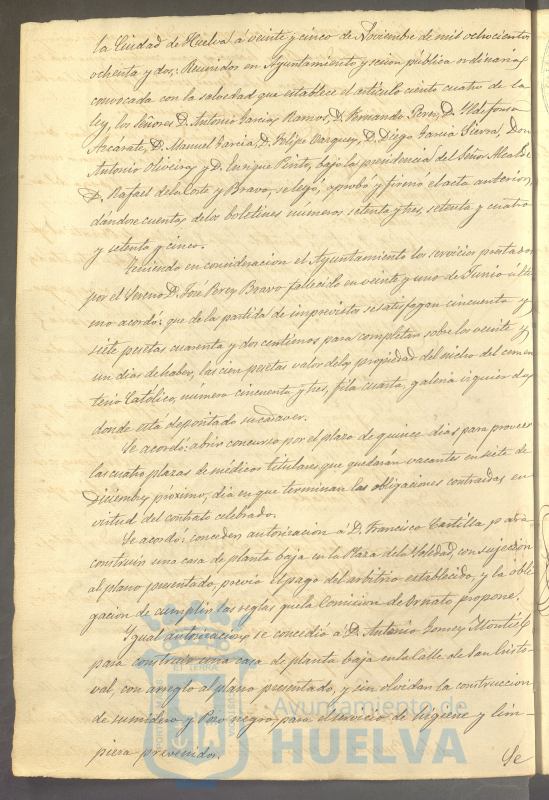 la Ciudad de Huelva á veinte y cinco de Noviembre de mil ochocientos
ochenta y dos: Reunidos en Ayuntamiento y sesion pública ordinaria
convocada con la salvedad que establece el artículo ciento cuatro de la
ley, los Señores D. Antonio Garcia Ramos, D. Fernando Perez, D. Ildefonso
Azcarate, D. Manuel Garcia, D. Felipe Vazquez, D. Diego Garcia Sierra, Don
Antonio Oliveira y D. Enrique Pinto, bajo la presidencia del Señor Alcalde
D. Rafael de la Corte y Bravo, se leyó, aprobó y firmó el acta anterior,
dándose cuenta de los boletines números setenta y tres, setenta y cuatro
y setenta y cinco.
Teniendo en consideracion el Ayuntamiento los servicios prestados
por el Sereno D. José Perez Bravo fallecido en veinte y uno de Junio últi
mo acordó: que de la partida de imprevistos se satisfagan cincuenta y
siete pesetas cuarenta y dos centimos para completar sobre los veinte y
un dias de haber, las cien pesetas valor de la propiedad del nicho del cemen
terio Católico, número cincuenta y tres, fila cuarta, galeria izquierda
donde está depositado su cadaver.
Se acordó: abrir concurso por el plazo de quince dias para proveer
las cuatro plazas de médicos titulares que quedarán vacantes en siete de
Diciembre próximo, dia en que terminan las obligaciones contraidas en
virtud del contrato celebrado.
Se acordó: conceder autorizacion á D. Francisco Castilla para
construir una casa de planta baja en la Plaza de la Soledad, con sujecion
al plano presentado, previo el pago del arbitrio establecido, y la obli
gacion de cumplir las reglas que la Comision de Ornato propone.
Igual autorizacion se concedió á D. Antonio Gomez Montiel
para construir una casa de planta baja en la Calle de San Cristo
val, con arreglo al plano presentado, y sin olvidar la construccion
de sumidero y Pozo negro para el servicio de higiene y lim
pieza prevenidos.
Se
Ayuntamiento de
HUELVA